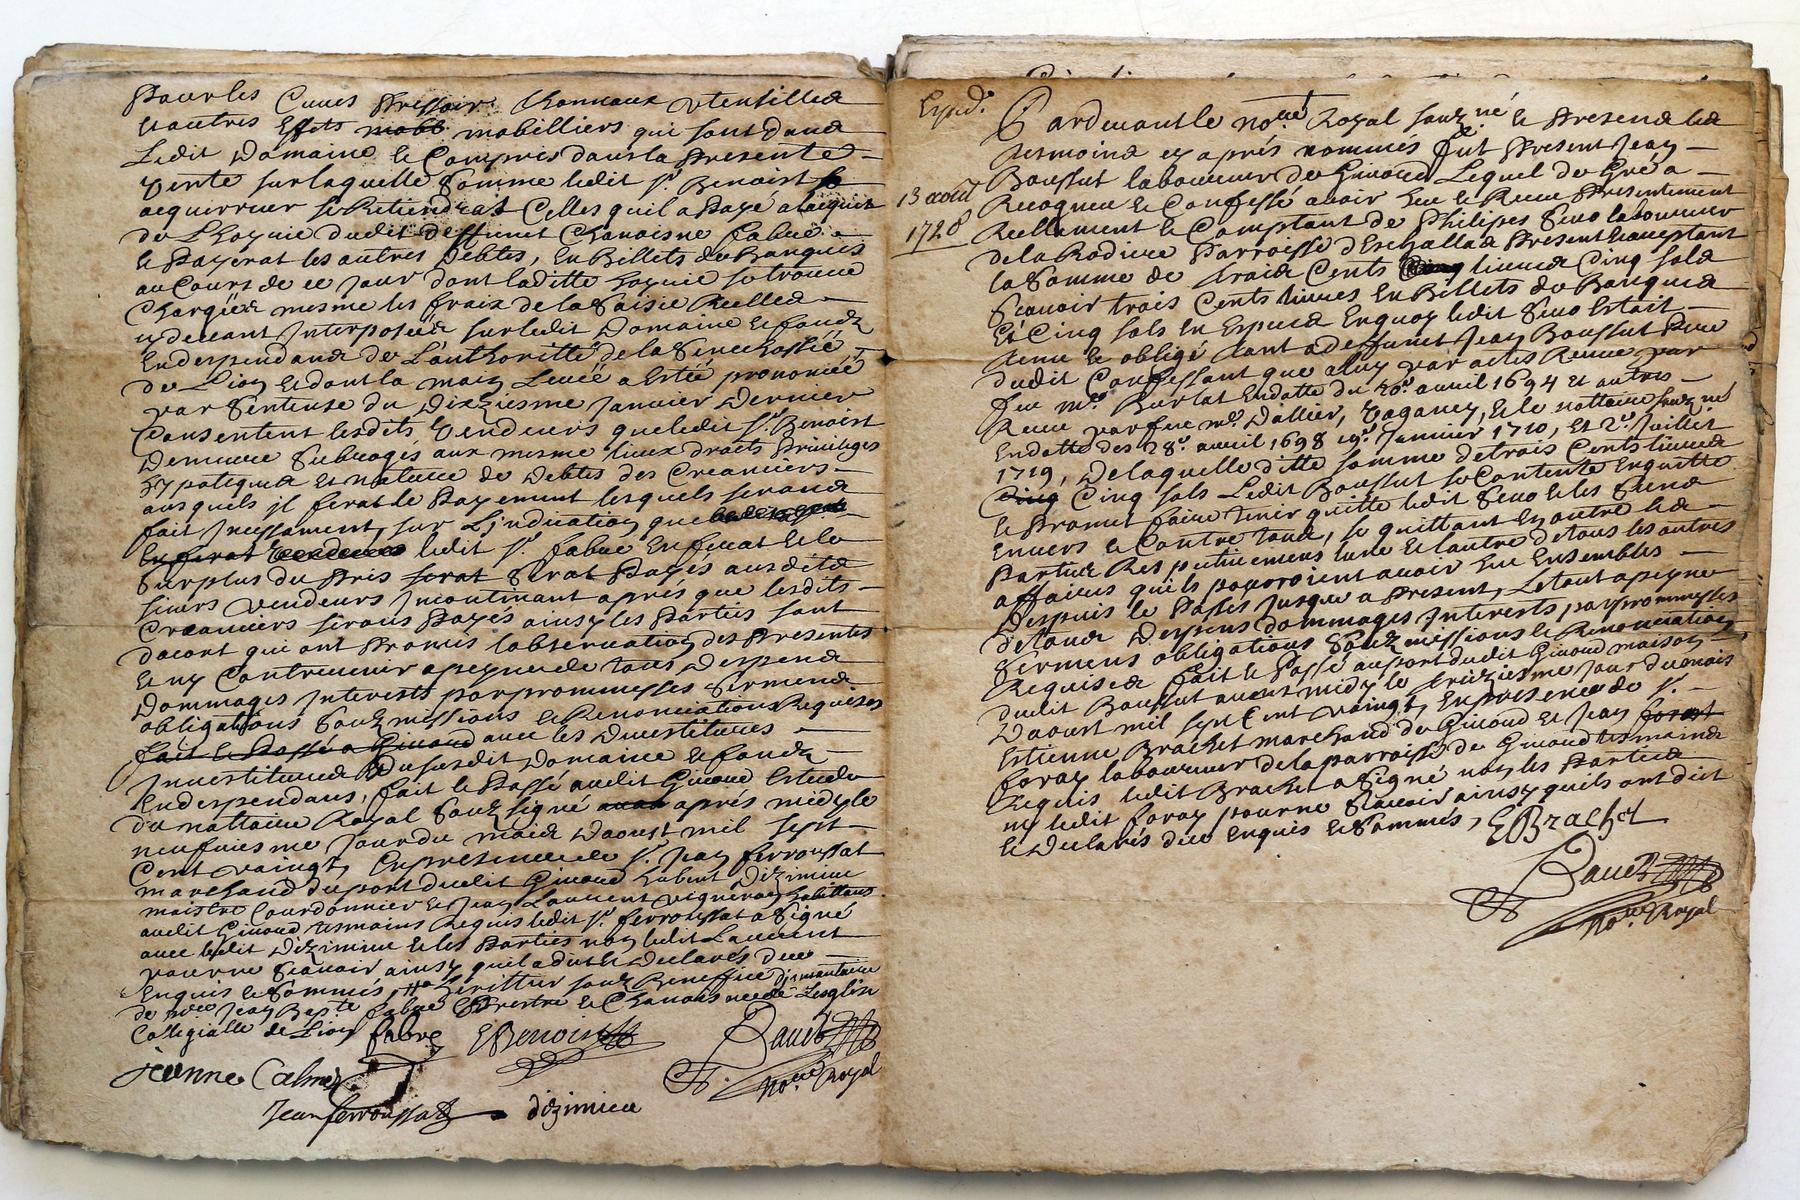 Pour les Cuves Pressoir Thonneaux Utensilles
et autres Effets mobb mobilliers qui sont dans
Ledit Domaine et Compris dans la presente
Vente sur laquelle Somme ledit Sr. Benoist
acquerreur se Retiendrat Celles quil a Paye a lacquit
de L'hoyrie dudit deffunct Chanoisne fabve
et Payerat les autres debtes, en Billets de Banques
au Cours de ce jour dont laditte hoyrie se trouve
Chargéé mesme les fraix de la Saisie Reelle
cy devant Interposéé sur ledit Domaine et fondz
Endespendans de L'authoritté de la Senechossée
de Lion et dont la main Levéé a Estéé prononcéé
par Sentence du Dixziesme Janvier Dernier
Consentent lesdits Vendeurs que ledit Sr. Benoist
Demeure Subrogés aux mesme lieux droits Privileges
hypoteques et nature de Debtes des Creanciers
ausquels jl ferat le Payement lesquels serons
fait Incessament, sur L'indication que
en ferat ledit Sr. fabve en ferat et le
Surplus du Pris serat Serat Payés ausdits
sieurs vendeurs Incontinant aprés que lesdits
Creanciers serons Payés ainsy les Parties sont
dacort qui ont Promis l'observation des Presentes
et ny Contrevenir a peyne de tous Despens
Dommages Interests par prommesses Sermens
obligations Soubzmissions et Renonciations Requises
fait et Passé a Givord avec les Devestitures
Investitures Dususdit Domaine et fondz
Endespendans, fait et Passé audit Givord Estude
du nottaire Royal Soubzsigné avan aprés midy le
neufviesme Jour du mois Daoust mil sept
Cent vaingt, En presence de Sr. Jean ferroussat
marchand du port dudit Givord hubert Dizimieu
maistre Courdonnier et Jean Laurent vigneron habittans
audit Givord tesmoins Requis ledit Sr. ferroussat a Signé
avec ledit Dizimieu et les Parties non ledit Laurent
pour ne Scavoir ainsy quil a dit et Declarés de ce
Enquis et Sommés, heritier soubz Beneffice d'inventaire
de mre Jean Bapte fabve Prestre et Chanoisne de Lesglise
Collegialle de Lion fabve EBenoist
Jeanne Calmez Dauet
Jean ferroussat dizimieu Nore Royal
Expd.
13 aoust
1720
Pardevant le nore Royal soubzné et Presens les
tesmoins cy aprés nommés fut Present Jean
Boussut laboureur de Givord Lequel de Gré a
Recogneu et Confessé avoir heu et Receu Presentement
Reellement et Comptant de Philipes Seuo laboureur
de la Rodiere Parroisse d'Eschallas Present et acceptant
la Somme de trois Cents Cinq livres Cinq sols
Scavoir trois Cents livres En Billets de Banques
Et Cinq sols En Especes En quoy ledit Seuo Estoit
tenu et obligé tant a deffunct Jean Boussut Pere
dudit Confessant que a luy par actes Receus par
feu me. Burlat En datte du 26e. avril 1694 et autres
Receu par feu me. Dallier, Vaganey, et le nottaire soubzné
En datte des 28e. avril 1698 Janvier 1710, et 2e. Juillet
1719, De laquelle ditte somme de trois Cents livres
Cinq Cinq sols Ledit Boussut se Contente En quitte
et Promet faire tenir quitte ledit Seuo et les Siens
Envers et Contre tous, se quittant En outre les
Parties Respectivement lune et lautre de tous les autres
affaires quils pourroient avoir heu Ensembles
Despuis le Passés Jusque a Present, Le tout a peyne
de tous Despens dommages Interests, par prommesses
Sermens obligations Soubzmissions et Renonciations
Requises fait et Passé au port dudit Givord maison
dudit Boussut avant midy le treiziesme Jour du mois
Daoust mil sept Cent vaingt, En presence de Sr.
Estienne Brachet marchand de Givord et Jean forest
foray laboureur de la parroisse de Givord tesmoins
Requis ledit Brachet a Signé non les Parties
ny ledit foray pour ne Scavoir ainsy quils ont dict
et Declarés de ce Enquis et Sommés, EBrachet
Dauet
Nore Royal